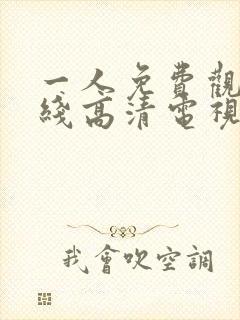 一人免費觀
綫高清電視
我會吹空調